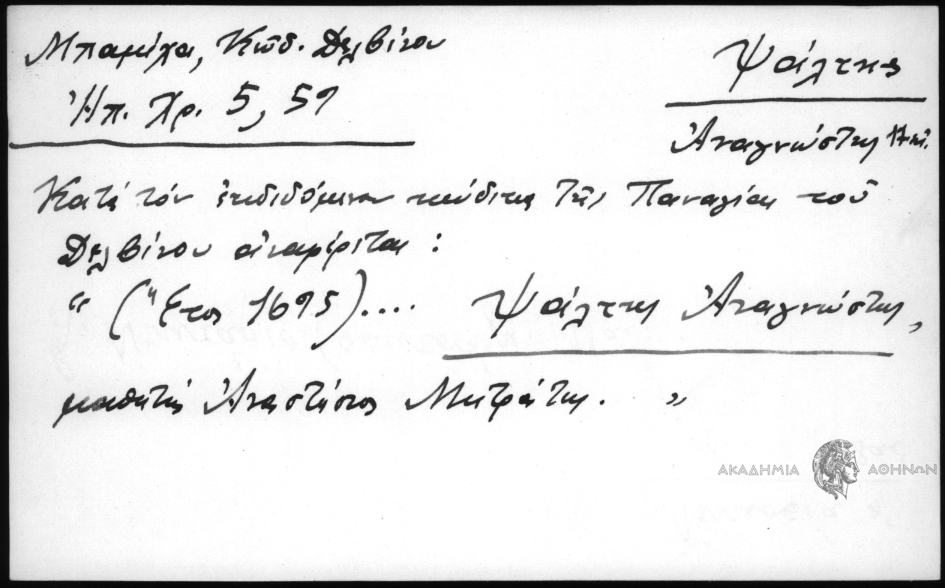 Μπαμίχα, Κώδ. Δελβίνου
Ἠπ. Χρ. 5, 59
Ψάλτης
Ἀναγνώστης
Κατά τόν ἐκδιδόμενον κώδικα τῆς Παναγίας τοῦ
Δελβίνου ἀναφέρεται :
“ (Ἔτος 1695) .... Ψάλτης Ἀναγνώστης,
μαθητής Ἀναστάσιος Μητράτης. ”
ΑΚΑΔΗΜΙΑ ΑΘΗΝΩΝ